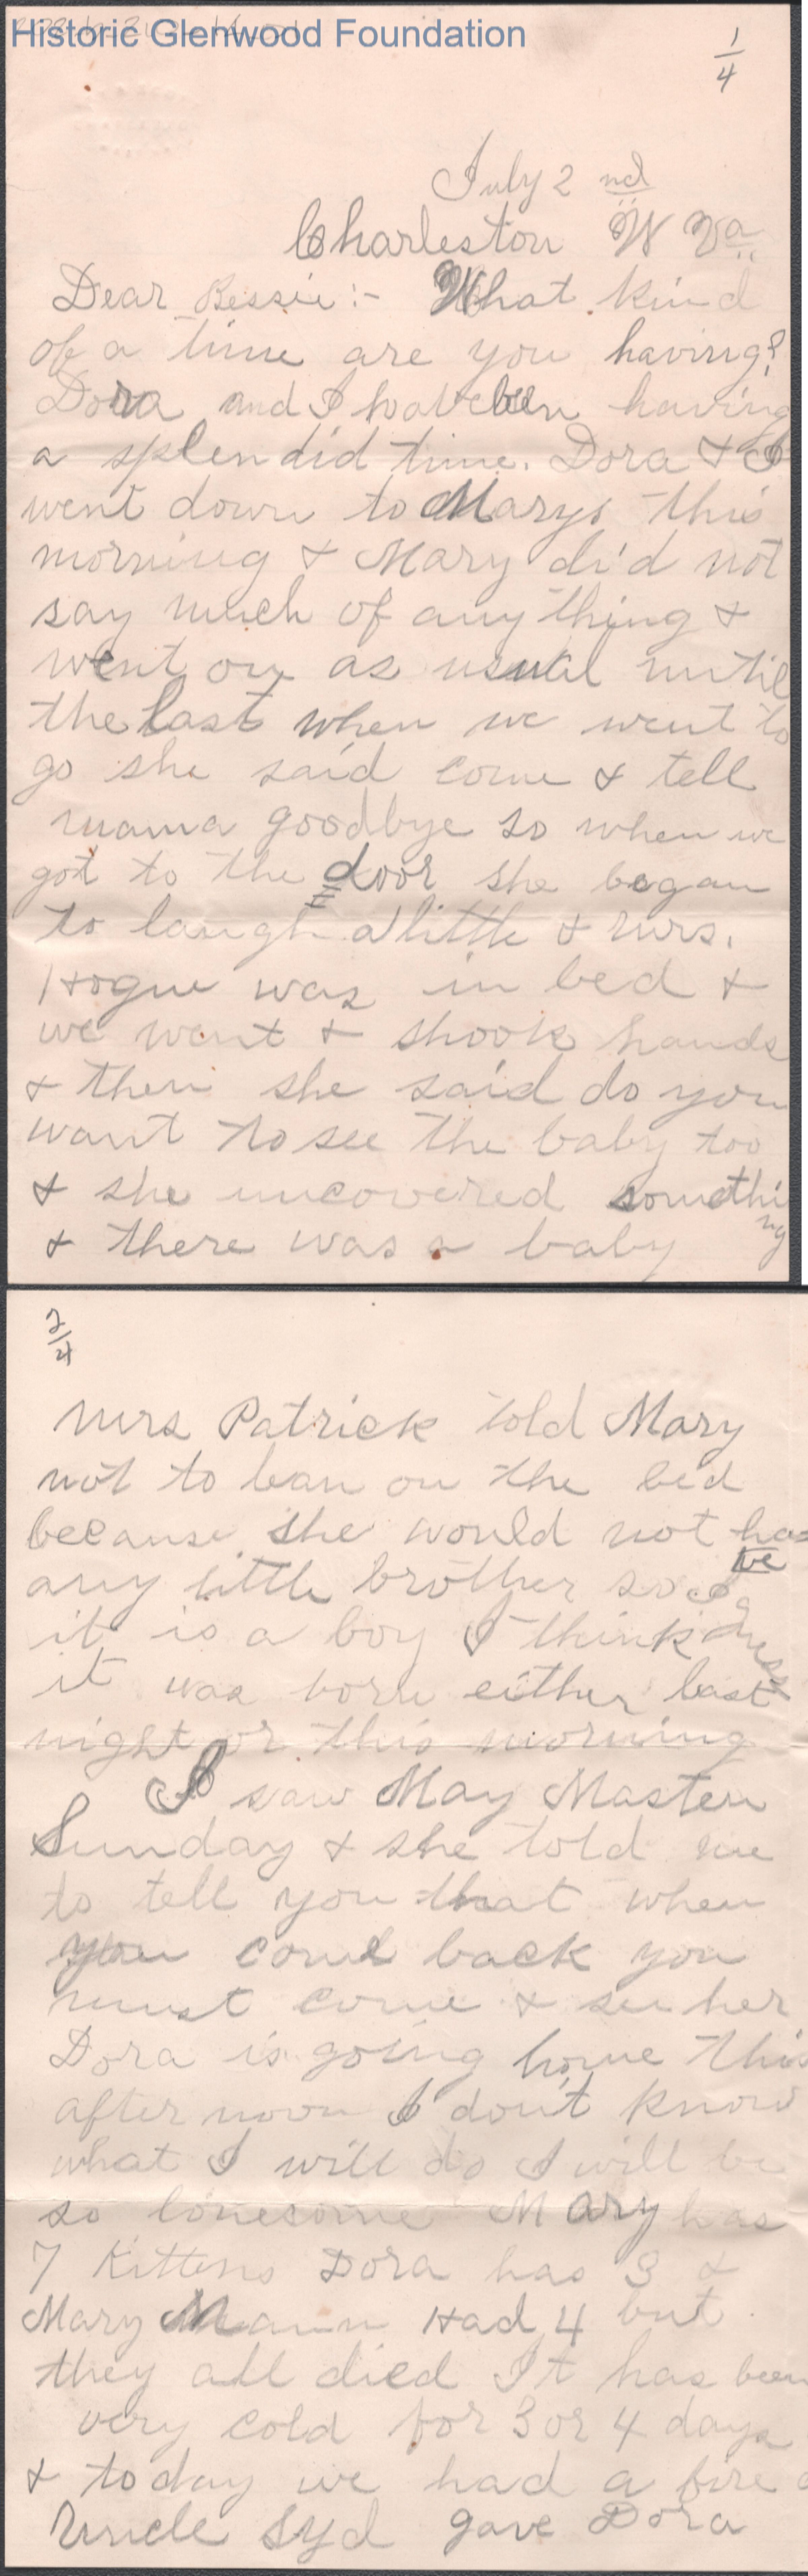 Historic Glenwood Foundation
1/4
July 2 nd
Charleston W Va
Dear Bessie:- What kind
of a time are you having?
Dora and I have been having
a splendid time. Dora & I
went down to Marys this
morning & Mary did not
say much of any thing &
went on as usual until
the last when we went to
go she said come & tell
mama goodbye so when we
got to the door she began
to laugh a little & mrs.
Hogue was in bed &
we went & shook hands
& then she said do you
want to see the baby too
& she uncovered somethi
ng
& there was a baby
2/4
Mrs Patrick told Mary
not to lean on the bed
because she would not ha
ve
any little brother so I g
uess
it is a boy I think
it was born either last
night or this morning
I saw May Masten
Sunday & she told me
to tell you that when
you come back you
must come & see her
Dora is going home this
after noon I don't know
what I will do I will be
so lonesome Mary has
7 Kittens Dora has 3 &
Mary Mann Had 4 but
they all died It has been
very cold for 3 or 4 days
& today we had a fire
Uncle Syd gave Dora